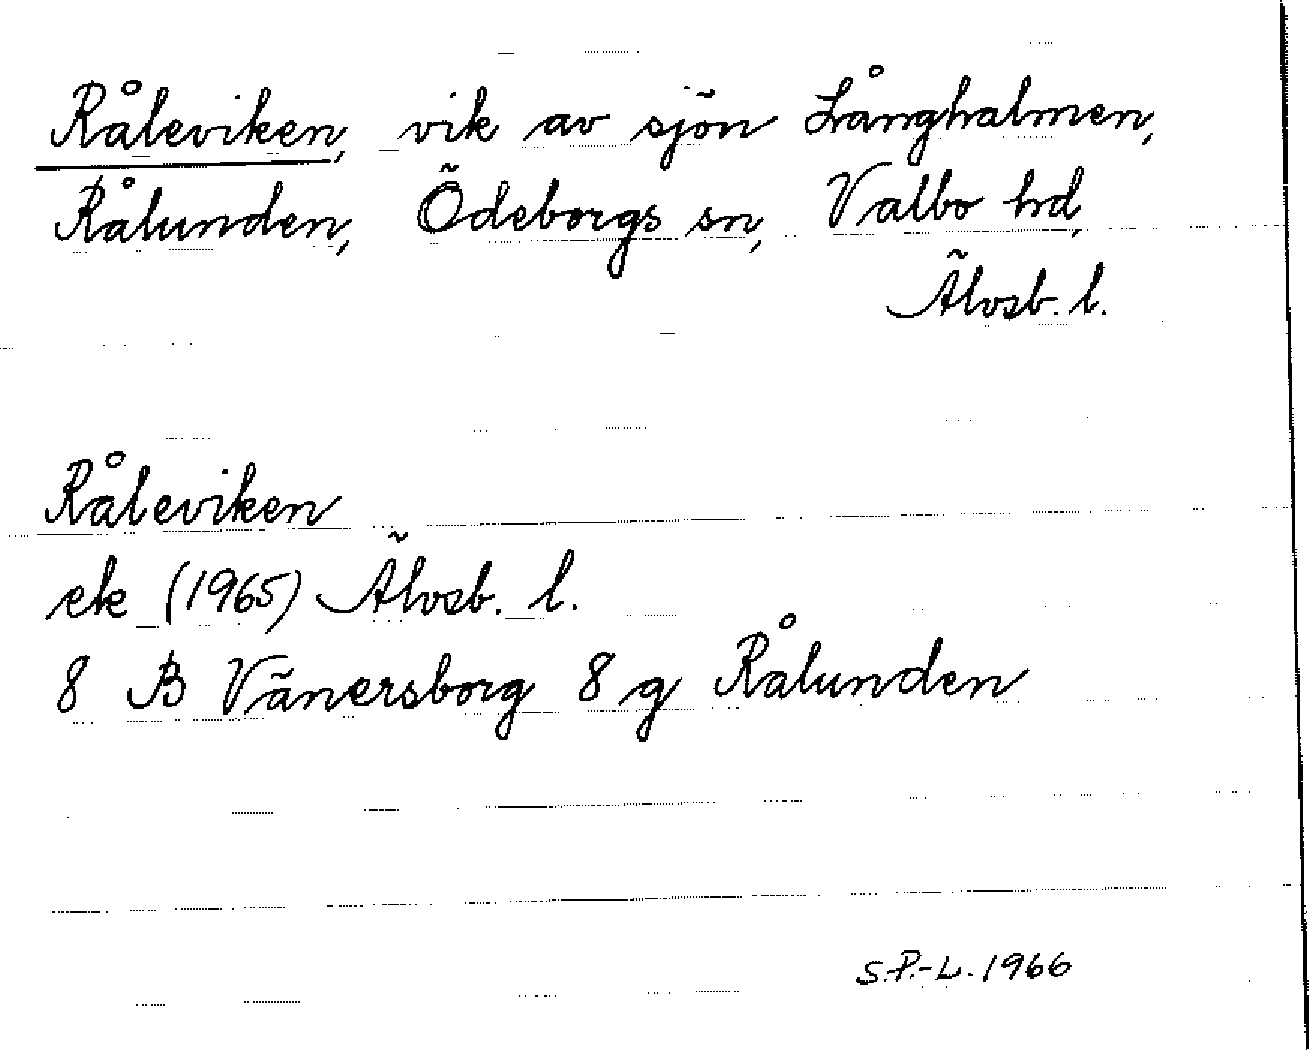 Råleviken, vik av sjön Långhalmen,
Rålunden, Ödeborgs sn, Valbo hd,
Älvsb. l.
Råleviken
ek (1965) Älvsb. l.
8 B Vänersborg 8 g Rålunden
S.P.-L. 1966